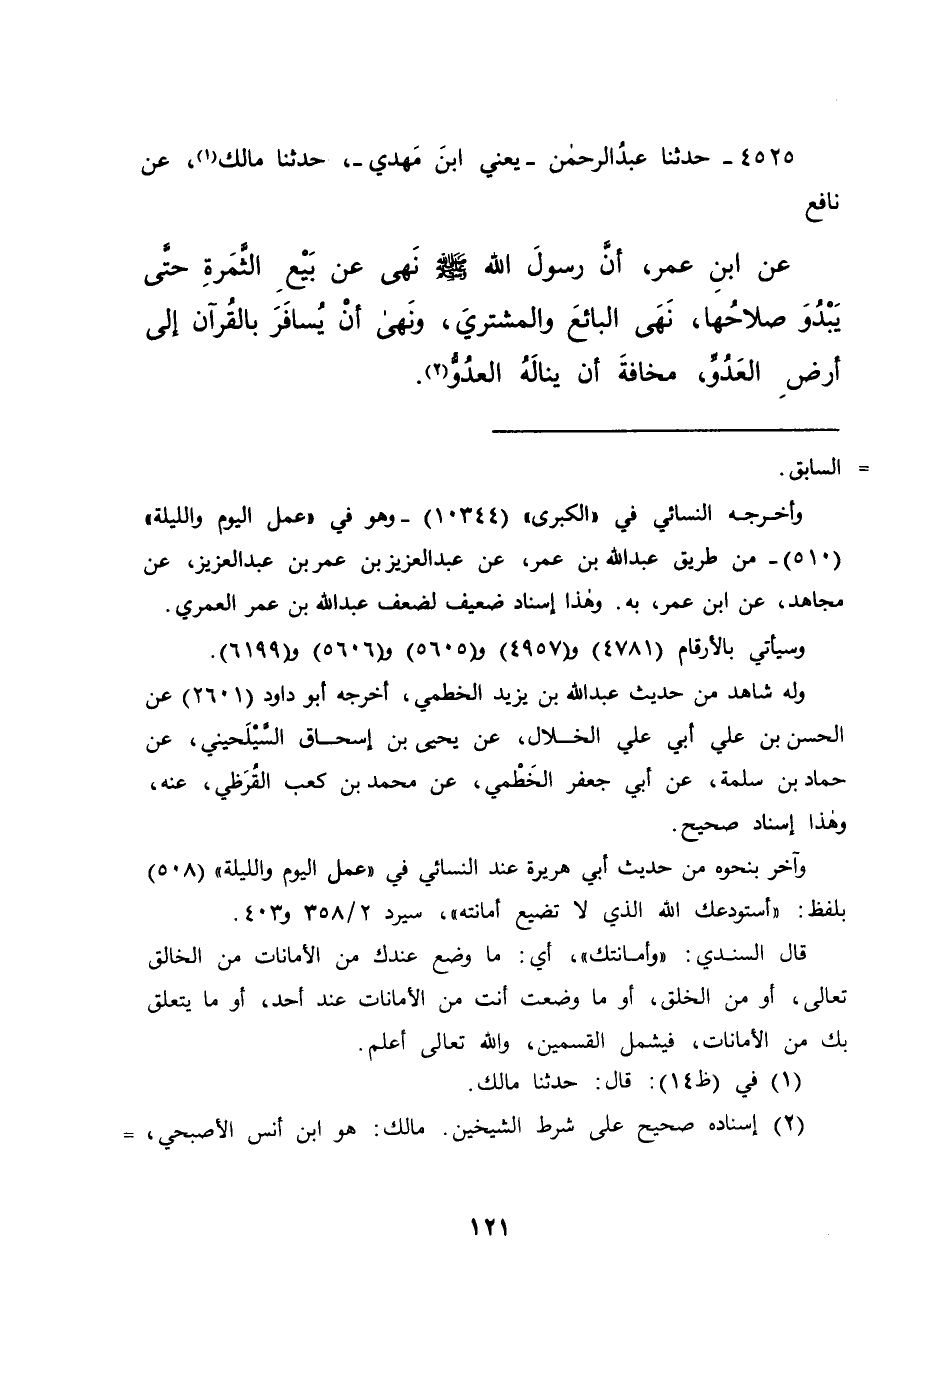 ٤٥٢٥ ـ حدثنا عبدُالرحمٰن ـ يعني ابنَ مَهدي ـ، حدثنا مالك(١)، عن
نافع
عن ابنِ عمر، أنَّ رسولَ الله ﷺ نَهى عن بَيْعِ الثَّمَرةِ حتَّى
يَبْدُوَ صلاحُها، نَهَى البائعَ والمشتريَ، ونَهىٰ أنْ يُسافَرَ بالقُرآن إلى
أرضِ العَدُوِّ، مخافةَ أن ينالَهُ العدُوُّ(٢).
= السابق.
وأخرجه النسائي في «الكبرى» (١٠٣٤٤) ـ وهو في «عمل اليوم والليلة»
(٥١٠) ـ من طريق عبدالله بن عمر، عن عبدالعزيز بن عمر بن عبدالعزيز، عن
مجاهد، عن ابن عمر، به. وهٰذا إسناد ضعيف لضعف عبدالله بن عمر العمري.
وسيأتي بالأرقام (٤٧٨١) و(٤٩٥٧) و(٥٦٠٥) و(٥٦٠٦) و(٦١٩٩).
وله شاهد من حديث عبدالله بن يزيد الخطمي، أخرجه أبو داود (٢٦٠١) عن
الحسن بن علي أبي علي الخلال، عن يحيى بن إسحاق السَّيْلَحيني، عن
حماد بن سلمة، عن أبي جعفر الخَطْمي، عن محمد بن كعب القُرَظي، عنه،
وهٰذا إسناد صحيح.
وآخر بنحوه من حديث أبي هريرة عند النسائي في «عمل اليوم والليلة» (٥٠٨)
بلفظ: «أستودعك الله الذي لا تضيع أمانته»، سيرد ٣٥٨/٢ و٤٠٣.
قال السندي: «وأمانتك»، أي: ما وضع عندك من الأمانات من الخالق
تعالى، أو من الخلق، أو ما وضعت أنت من الأمانات عند أحد، أو ما يتعلق
بك من الأمانات، فيشمل القسمين، والله تعالى أعلم.
(١) في (ظ١٤): قال: حدثنا مالك.
(٢) إسناده صحيح على شرط الشيخين. مالك: هو ابن أنس الأصبحي، =
١٢١